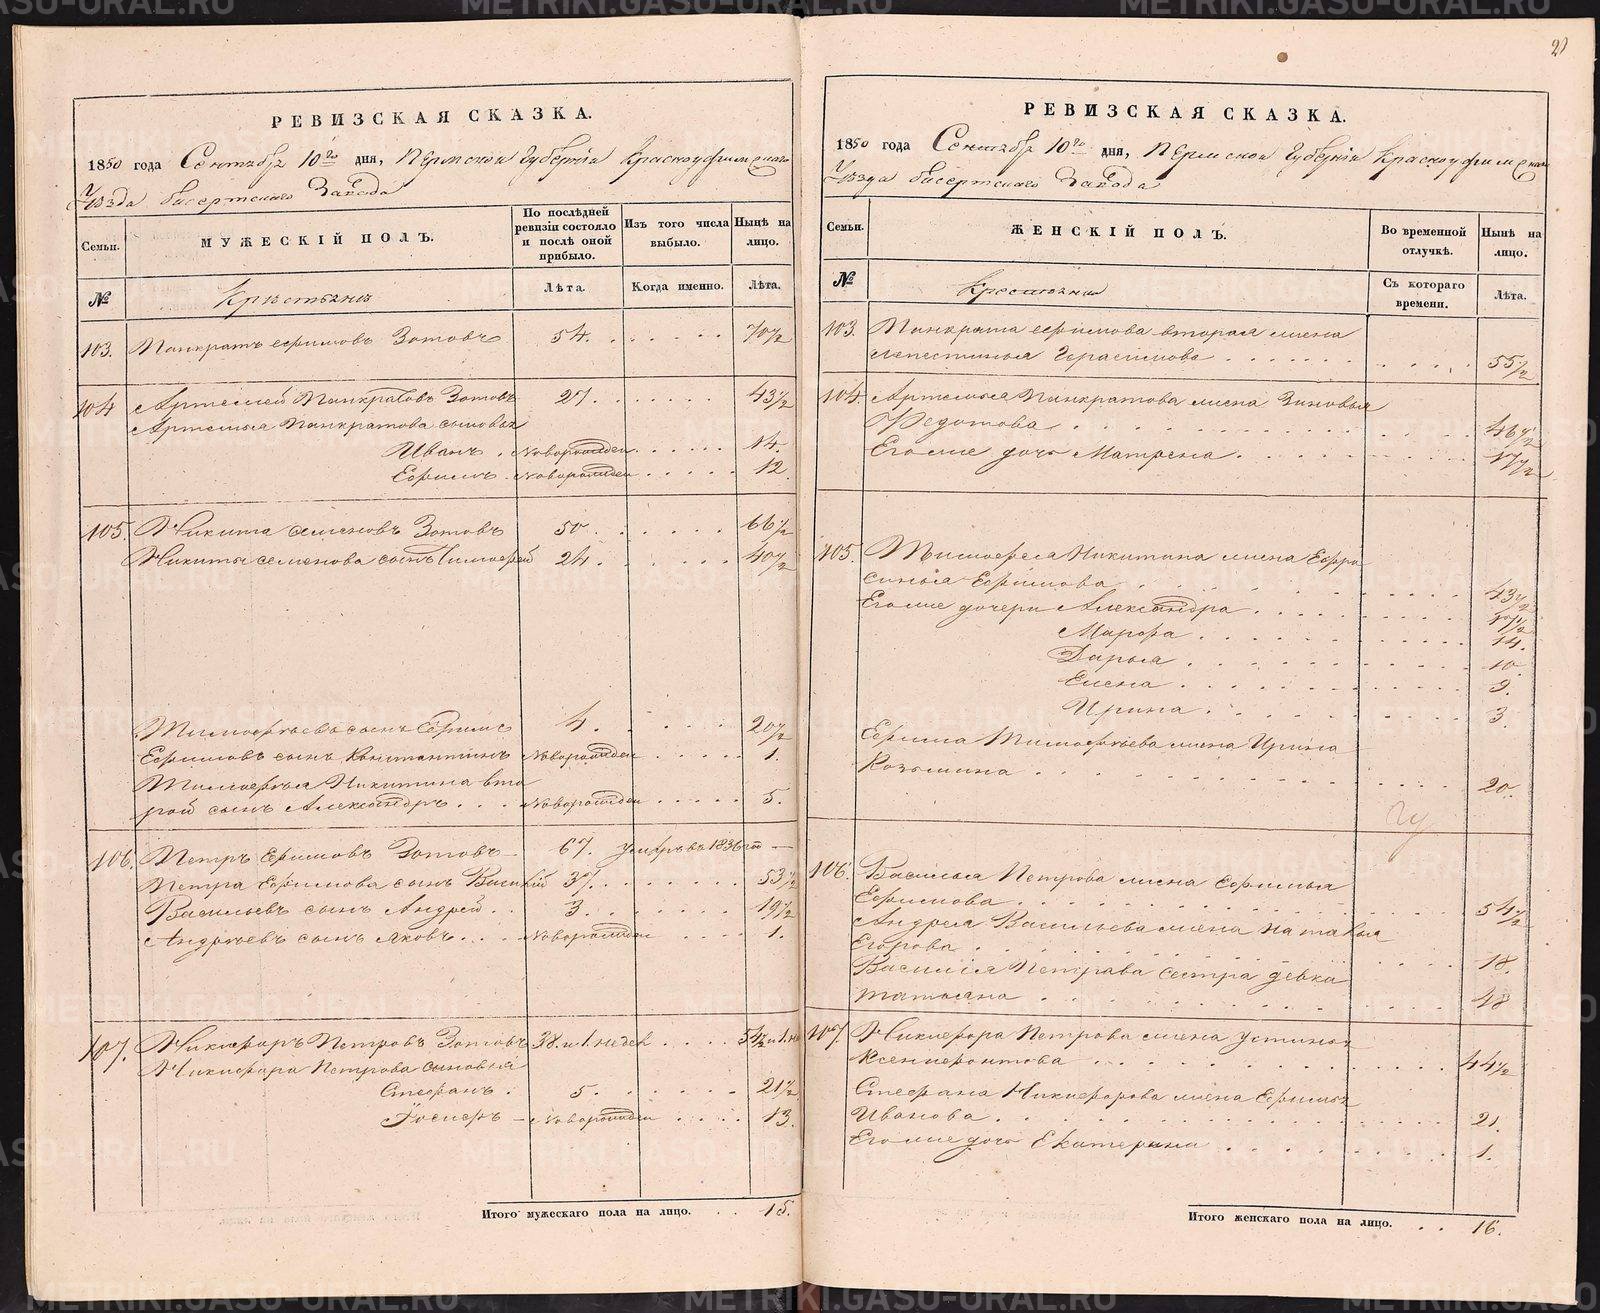 РЕВИЗСКАЯ СКАЗКА.
1850 года Сентября 10го дня, Пермской Губернiи Красноуфимскаго
Уѣзда Бисертскаго Завода
Семьи.
МУЖЕСКІЙ ПОЛЪ.
По послѣдней ревизіи состояло и послѣ оной прибыло.
Изъ того числа выбыло.
Нынѣ на лицо.
№
Крестьяне
Лѣта.
Когда именно.
Лѣта.
103. Панкратъ Ефимовъ Зотовъ 54. 70 1/2
104 Артемей Панкратовъ Зотовъ 27. 43 1/2
Артемья Панкратова сыновья
Иванъ. Новорожден 14.
Ефимъ. Новорожден 12
105. Никита Семеновъ Зотовъ 50. 66 1/2
Никиты Семенова сынъ Тимофей 24. 40 1/2
Тимофеевъ сынъ Ефимъ 4. 20 1/2
Ефимовъ сынъ Константинъ Новорожден 1.
Тимофея Никитина вто
рой сынъ Александръ Новорожден 5.
106. Петръ Ефимовъ Зотовъ 67. умеръ въ 1836 го —
Петра Ефимова сынъ Василiй 37. 53 1/2
Васильевъ сынъ Андрей 3. 19 1/2
Андреевъ сынъ Яковъ Новорожден 1.
107. Никифоръ Петровъ Зотовъ 38. и 1. недел 54 1/2 и 1. не
Никифора Петрова сыновья
Стефанъ. 5. 21 1/2
Iосифъ — Новорожден 13.
Итого мужескаго пола на лицо. 15.
РЕВИЗСКАЯ СКАЗКА.
1850 года Сентября 10го дня, Пермской Губернiи Красноуфимскаго
Уѣзда Бисертскаго Завода
Семьи.
ЖЕНСКІЙ ПОЛЪ.
Во временной отлучкѣ.
Нынѣ на лицо.
№
Крестьяне
Съ котораго времени.
Лѣта.
103. Панкрата Ефимова вторая жена
Апестинья Герасимова 55 1/2
104. Артемья Панкратова жена Зиновья
Федотова 46 1/2
Его же дочь Матрена 17 1/2
105. Тимофея Никитина жена Ефро
синья Ефимова 43 1/2
Его же дочери Александра
Марфа 14.
Дарья 10
Елена 9.
Ирина 3.
Ефима Тимофѣева жена Ирина
Козьмина 20.
106. Василья Петрова жена Ефимья
Ефимова 54 1/2
Андрея Васильева жена Наталья
Егорова 18.
Василiя Петрова сестра девка
Татьяна 48
107. Никифора Петрова жена Устинья
Ксенофонтова 44 1/2
Стефана Никифорова жена Ефимья
Иванова. 21.
Его же дочь Екатерина 1.
Итого женскаго пола на лицо. 16.
METRIKI.GASO-URAL.RU